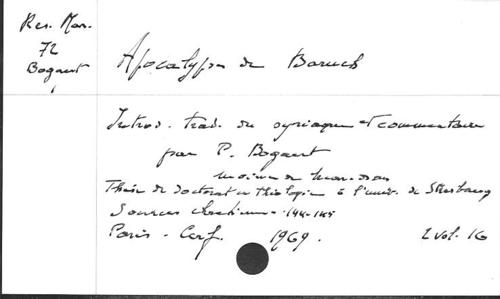 Res. Mar.
72
Bogaert
Apocalypse de Baruch
Introd. trad. du syriaque et commentaire
par P. Bogaert
moine de Maredsous
Thèse de doctorat en théologie à l'univ. de Strasbourg
Sources chrétiennes 144-145
Paris - Cerf. 1969. 2 vol. 16